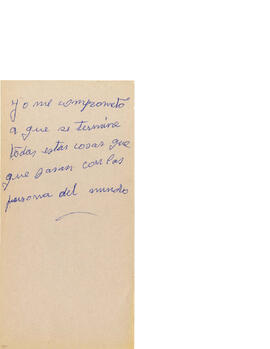 Yo me comprometo
a que se termine
todas estas cosas que
que pasan con las
persona del mundo